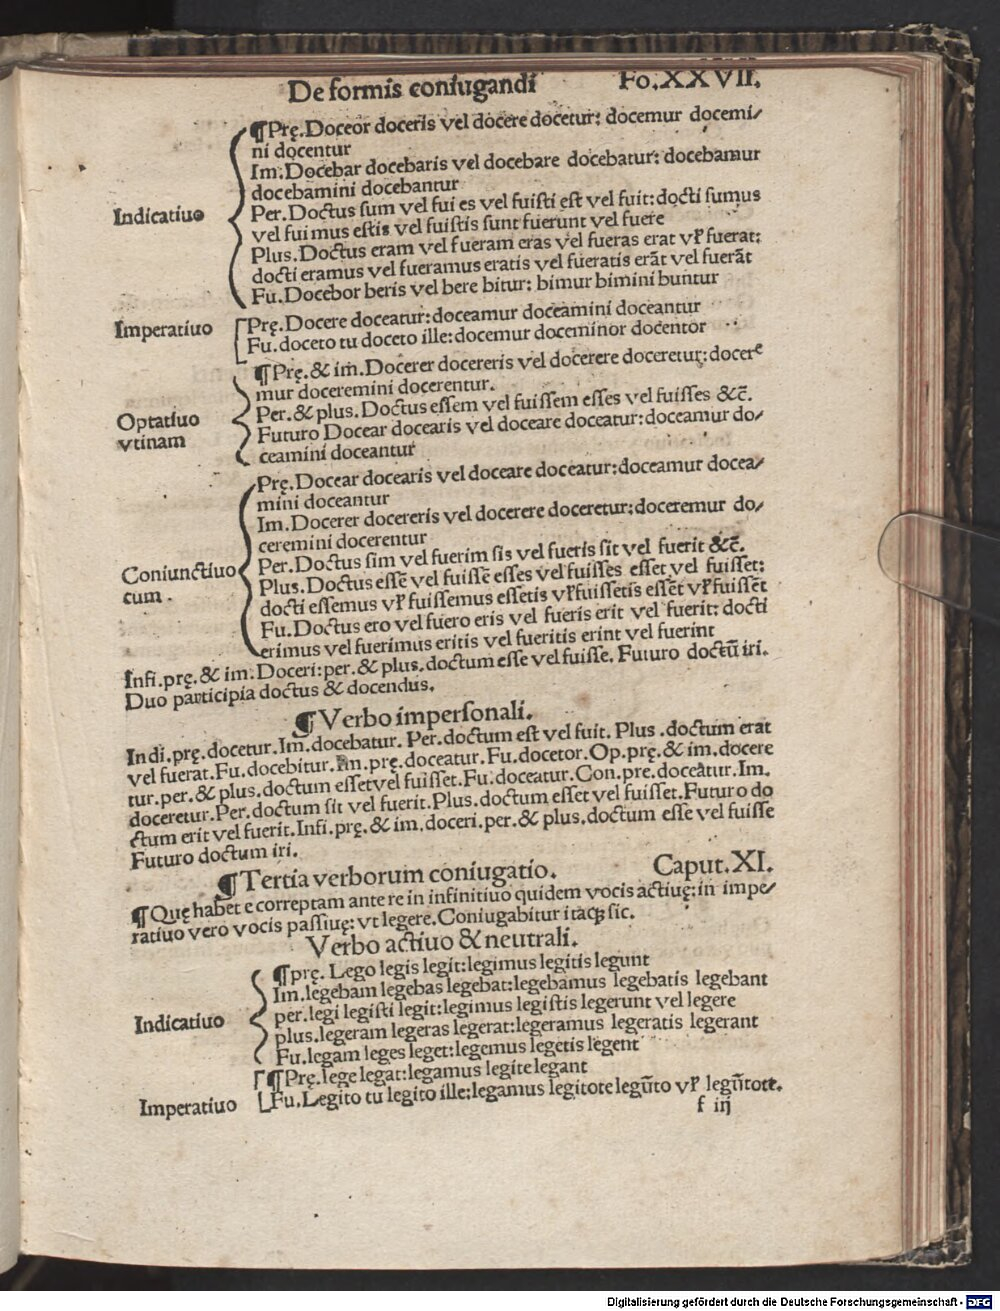 De formis coniugandi Fo.XXVII.
¶Prę.Doceor doceris vel docere docetur: docemur docemi/
ni docentur
Im.Docebar docebaris vel docebare docebatur: docebamur
docebamini docebantur
Indicatiuo
Per.Doctus sum vel fui es vel fuisti est vel fuit:docti sumus
vel fuimus estis vel fuistis sunt fuerunt vel fuere
Plus.Doctus eram vel fueram eras vel fueras erat vł fuerat:
docti eramus vel fueramus eratis vel fueratis erāt vel fuerāt
Fu.Docebor beris vel bere bitur: bimur bimini buntur
Imperatiuo
Prę.Docere doceatur:doceamur doceamini doceantur
Fu.doceto tu doceto ille:docemur doceminor docentor
¶Prę.& im.Docerer docereris vel docerere doceretur:docere
mur doceremini docerentur.
Optatiuo
vtinam
Per.& plus.Doctus essem vel fuissem esses vel fuisses &c̄.
Futuro Docear docearis vel doceare doceatur:doceamur do/
ceamini doceantur
Prę.Docear docearis vel doceare doceatur:doceamur docea/
mini doceantur
Im.Docerer docereris vel docerere doceretur:doceremur do/
ceremini docerentur
Coniunctiuo
cum.
Per.Doctus sim vel fuerim sis vel fueris sit vel fuerit &c̄.
Plus.Doctus essē vel fuissē esses vel fuisses esset vel fuisset:
docti essemus vł fuissemus essetis vł fuissetis essēt vł fuissēt
Fu.Doctus ero vel fuero eris vel fueris erit vel fuerit: docti
erimus vel fuerimus eritis vel fueritis erint vel fuerint
Infi.prę.& im.Doceri:per.& plus.doctum esse vel fuisse. Futuro doctū iri.
Duo participia doctus & docendus.
¶Verbo impersonali.
Indi.prę.docetur.Im.docebatur. Per.doctum est vel fuit. Plus.doctum erat
vel fuerat.Fu.docebitur.Im.prę.doceatur.Fu.docetor.Op.prę.& im.docere
tur.per.& plus.doctum esset vel fuisset.Fu.doceatur.Con.pre.doceatur.Im.
doceretur.Per.doctum sit vel fuerit.Plus.doctum esset vel fuisset.Futuro do
ctum erit vel fuerit.Infi.prę.& im.doceri.per.& plus.doctum esse vel fuisse
Futuro doctum iri.
¶Tertia verborum coniugatio. Caput.XI.
¶Quę habet e correptam ante re in infinitiuo quidem vocis actiuę:in impe/
ratiuo vero vocis passiuę: vt legere.Coniugabitur itaqꝫ sic.
Verbo actiuo & neutrali.
¶prę. Lego legis legit:legimus legitis legunt
Im.legebam legebas legebat:legebamus legebatis legebant
Indicatiuo
per.legi legisti legit:legimus legistis legerunt vel legere
plus.legeram legeras legerat:legeramus legeratis legerant
Fu.legam leges leget:legemus legetis legent
Imperatiuo
¶Prę.lege legat:legamus legite legant
Fu.Legito tu legito ille:legamus legitote legūto vł legūtote.
f iij
Digitalisierung gefördert durch die Deutsche Forschungsgemeinschaft - DFG